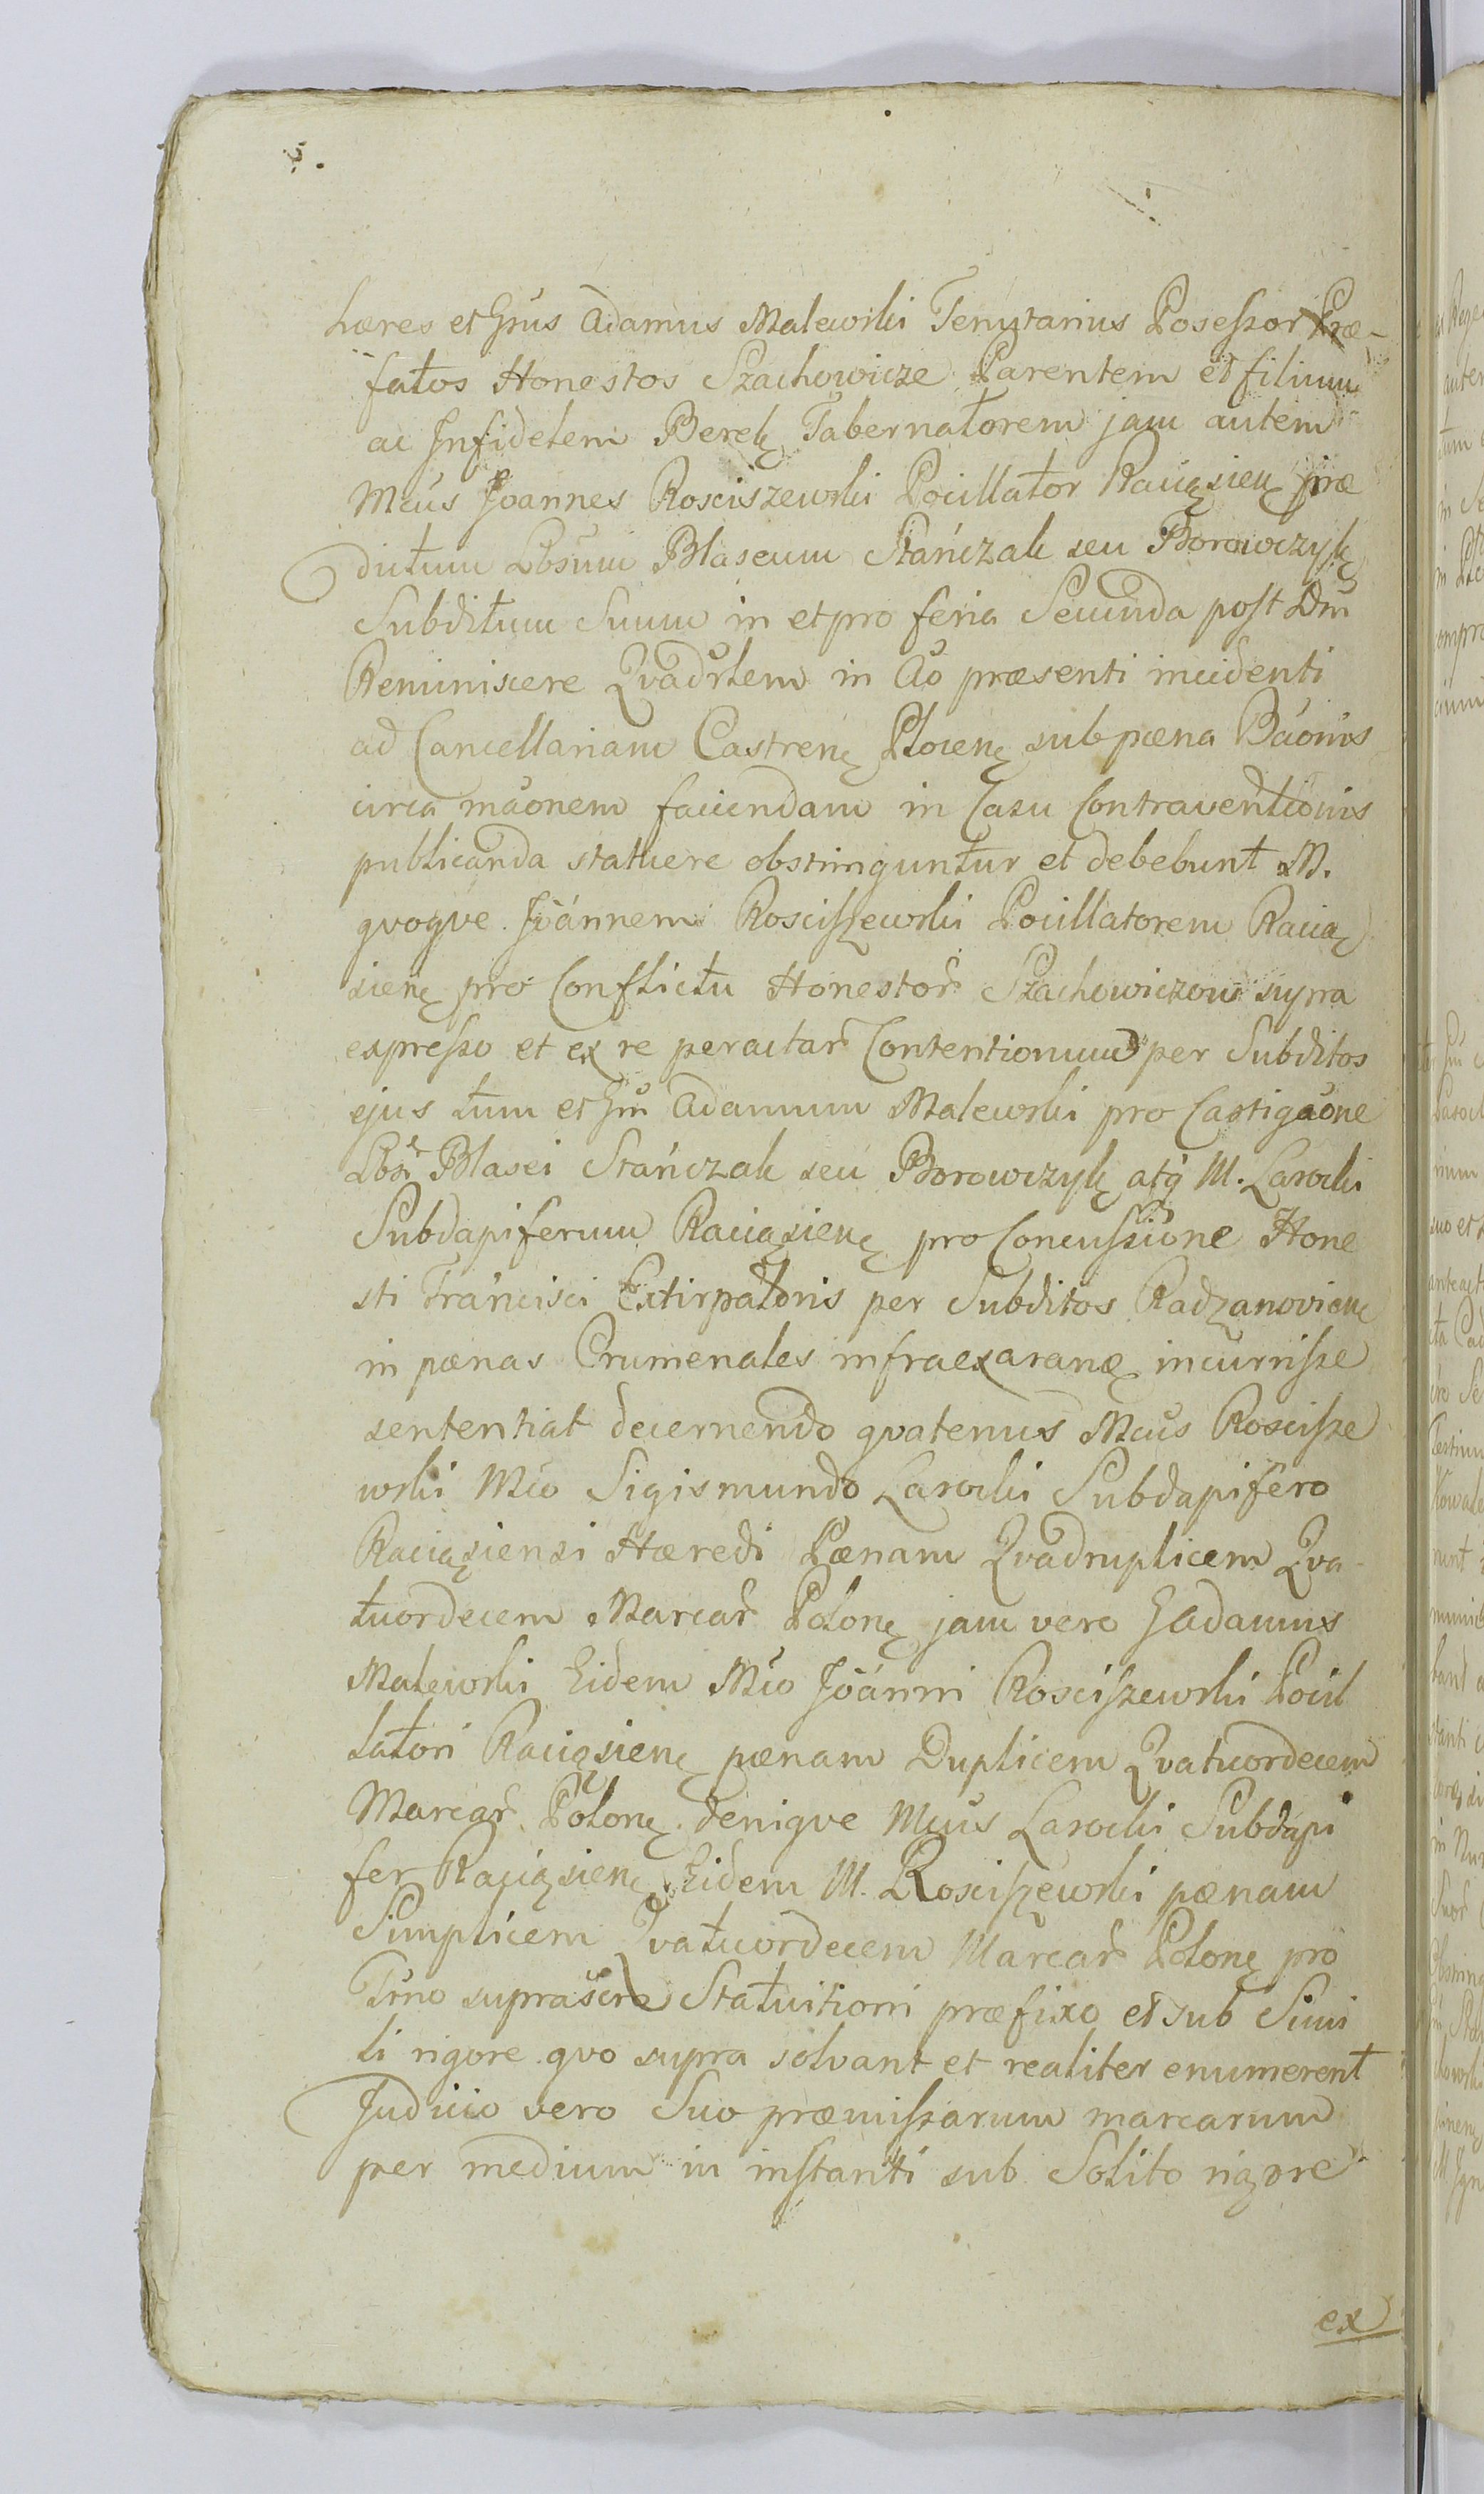 hæres et Gr̃us Adamus Malewski Tenutarius Posessor Præ-
fatos Honestos Szachowicze Parentem et filium
ac Infidelem Berek Tabernatorem jam autem
Mcus Joannes Rosciszewski Pocillator Raciąsien præ
dictum Lbsum Blaseum Stańczak seu Borowczyk
Subditum Suum in et pro feria Secunda post Dm̃
Reminiscere Qvadrlem in Ao præsenti incidenti
ad Cancellariam Castren Plocen sub pæna Bãonis
circa mãonem faciendam in Casu Contraventionis
publicanda statuere obstringuntur et debebunt M.
qvoqve Jõannem Rosciszewski Pocillatorem Racią
sien pro Conflictu Honestor Szachowiczow supra
expresso et ex re peractar Contentionum per Subditos
ejus tum et Gm̃ Adamum Malewski pro Castigãone
Lbsi Blasei Stańczak seu Borowczyk atq M. Lasocki
Subdapiferum Raciąsien pro Concussione Hone
sti Francisci Extirpatoris per Subditos Radzanovien
in pænas Crumenales infraexaranę incurrisse
sententiat decernendo qvatenus Mcus Roscisze
wski Mco Sigismundo Lasocki Subdapifero
Raciąsiensi Hæredi Pænam Qvadruplicem Qva-
tuordecem Marcar Polon jam vero G Adamus
Malewski Eidem Mco Jõanni Rosciszewski Pocil
latori Raciąsien pænam Duplicem Qvatuordecem
Marcar Polon. deniqve Mcus Lasocki Subdapi
fer Raciąsien Eidem M. Rosciszewski pænam
Simplicem Qvatuordecem Marcar Polon pro
Tr̃no suprascr̃ Statuitioni præfixo et sub Simi
li rigore qvo supra solvant et realiter enumerent
Judicio vero Suo præmissarum marcarum
per medium in instanti sub Solito rigore
ex